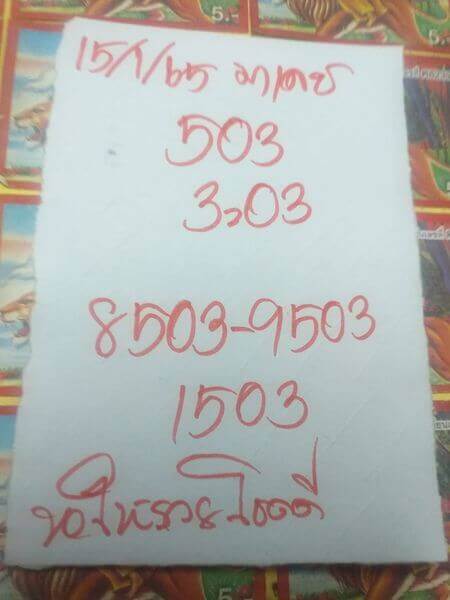 15/1/65 มาเลย์
503
3,03
8503-9503
1503
ขอให้รวยโชคดี
5.-
5.-